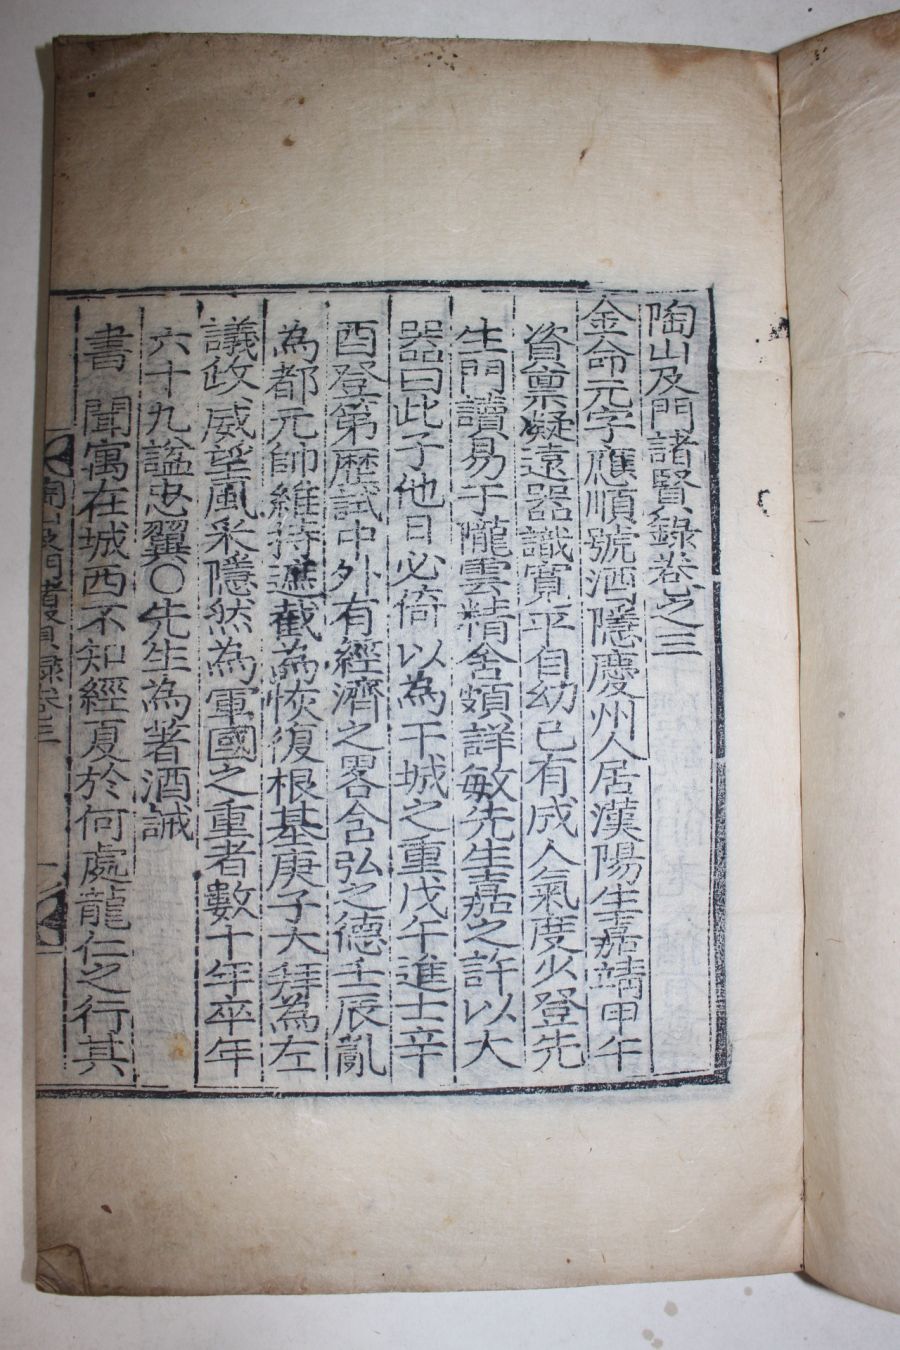 陶山及門諸賢錄卷之三
金命元字應順號酒隱慶州人居漢陽生嘉靖甲午
資稟凝遠器識寬平自幼已有成人氣度少登先
生門讀易于隴雲精舍頗詳敏先生嘉之許以大
器曰此子他日必倚以為干城之重戊午進士辛
酉登第歷試中外有經濟之畧含弘之德壬辰亂
為都元帥維持遮截為恢復根基庚子大拜為左
議政威望風采隱然為軍國之重者數十年卒年
六十九諡忠翼○先生為著酒誡
書 聞寓在城西不知經夏於何處龍仁之行其
陶山及門諸賢錄卷三